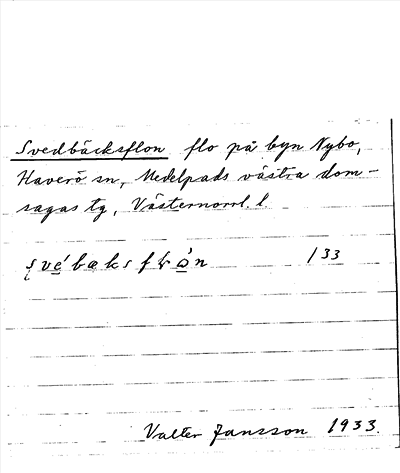 Svedbäcksflon flo på byn Nybo,
Haverö sn, Medelpads västra dom-
sagas tg, Västernorrl. l.
133
Valter Jansson 1933.